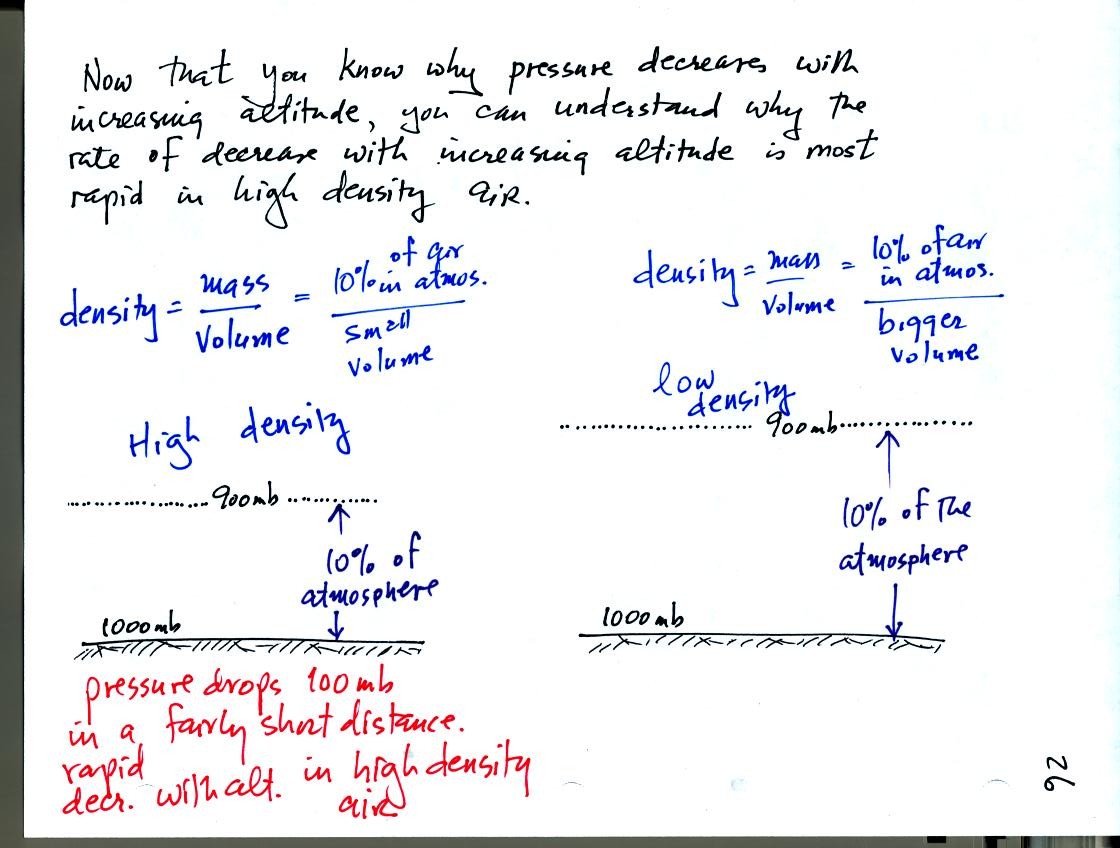 Now that you know why pressure decreases with
increasing altitude, you can understand why the
rate of decrease with increasing altitude is most
rapid in high density air.
density = mass / Volume = 10% of air in atmos. / small volume
High density
900mb
10% of
atmosphere
1000mb
pressure drops 100 mb
in a fairly short distance.
rapid
decr. with alt. in high density
air
density = mass / Volume = 10% of air in atmos. / bigger volume
low
density
900mb
10% of the
atmosphere
1000mb
26